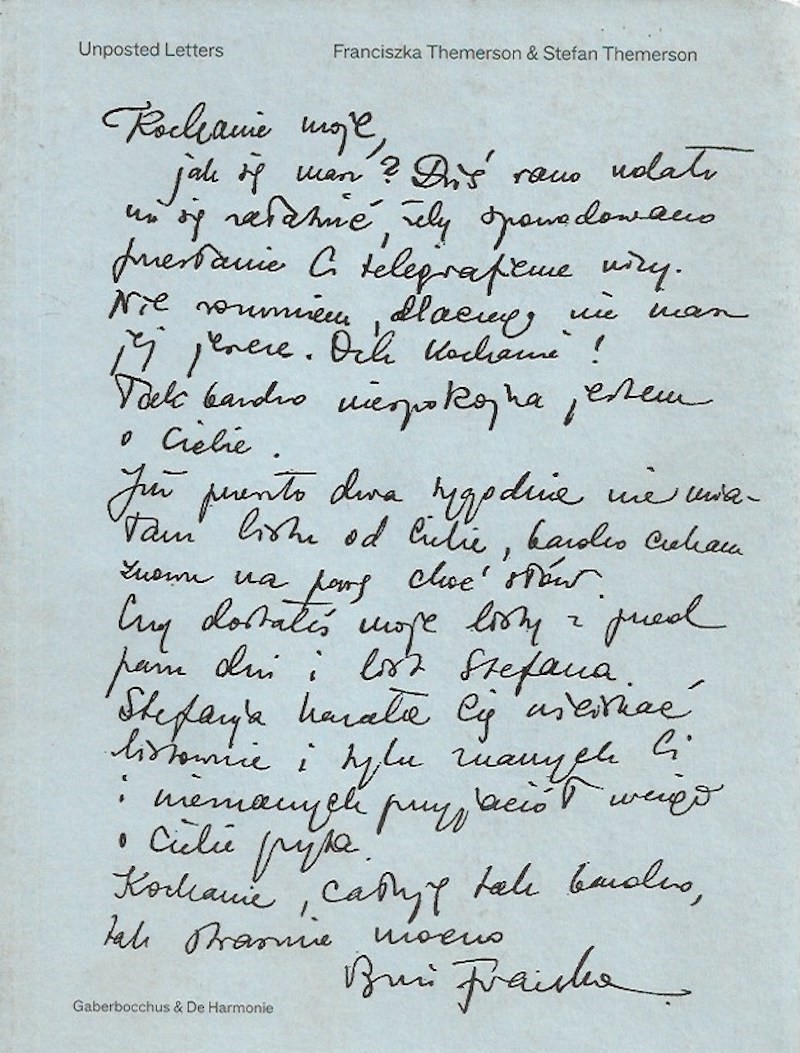 Unposted Letters
Franciszka Themerson & Stefan Themerson
Kochanie moje,
jak się masz? Dziś rano udało
mi się załatwić, żeby spowodowano
przesłanie Ci telegraficzne wizy.
Nie rozumiem, dlaczego nie masz
jej jeszcze. Och Kochanie!
Tak bardzo niespokojna jestem
o Ciebie.
Już przeszło dwa tygodnie nie mia-
łam listu od Ciebie, bardzo czekam
znowu na parę choć słów.
Czy dostałeś moje listy z przed
paru dni i list Stefana.
Stefanja kazała Cię uściskać
listownie i tylu znanych Ci
i nieznanych przyjaciół wciąż
o Ciebie pyta.
Kochanie, całuję tak bardzo,
tak strasznie mocno
Franciszka
Gaberbocchus & De Harmonie